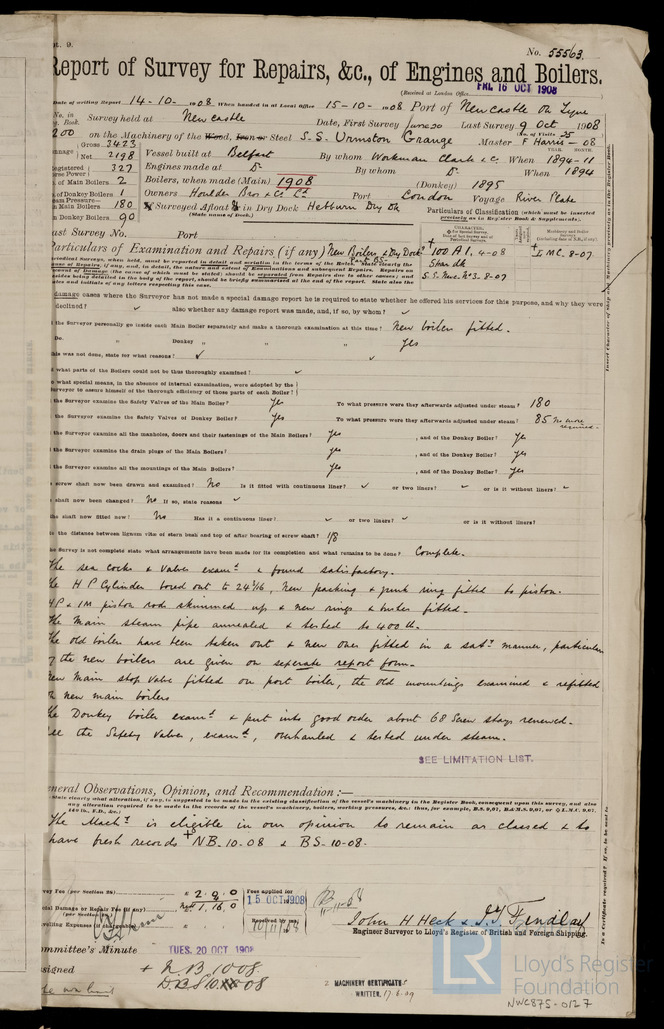 pt. 9.
No. 55563
Report of Survey for Repairs, &c., of Engines and Boilers.
(Received at London Office
FRI. 16 OCT 1908
Date of writing Report 14-10-1908 When handed in at Local Office 15-10-1908 Port of Newcastle on Tyne
No. in Reg. Book. Survey held at Newcastle Date, First Survey June 30 Last Survey 9 Oct 1908
(No. of Visits 25
200 on the Machinery of the Wood, Iron or Steel S.S. Urmston Grange Master F Harris - 08
Gross 3423
Net 2198
Vessel built at Belfast By whom Workman Clark & Co. When 1894-11
Registered Horse Power 327 Engines made at Do By whom Do When 1894
No. of Main Boilers 2 Boilers, when made (Main) 1908 (Donkey) 1895
No. of Donkey Boilers 1 Owners Houlder Bros & Co Ld Port London Voyage River Plate
Steam Pressure in Main Boilers 180 If Surveyed Afloat & in Dry Dock Hebburn Dry Dk
(State name of Dock.)
in Donkey Boilers 90
Particulars of Classification (which must be inserted precisely as in Register Book & Supplement).
Last Survey No. Port
Particulars of Examination and Repairs (if any) New Boilers & Dry Dock
+100 A1. 4-08
Shade dk
S.S. Newc. No 3. 8-07
+LMC. 8-07
damage cases where the Surveyor has not made a special damage report he is required to state whether he offered his services for this purpose, and why they were
declined? also whether any damage report was made, and, if so, by whom?
the Surveyor personally go inside each Main Boiler separately and make a thorough examination at this time? New boilers fitted.
Do. " Donkey " " Yes
this was not done, state for what reasons?
what parts of the Boilers could not be thus thoroughly examined?
what special means, in the absence of internal examination, were adopted by the
Surveyor to assure himself of the thorough efficiency of those parts of each Boiler?
the Surveyor examine the Safety Valves of the Main Boiler? Yes To what pressure were they afterwards adjusted under steam? 180
the Surveyor examine the Safety Valves of Donkey Boiler? Yes To what pressure were they afterwards adjusted under steam? 85 no more required.
the Surveyor examine all the manholes, doors and their fastenings of the Main Boilers? Yes , and of the Donkey Boiler? Yes
the Surveyor examine the drain plugs of the Main Boilers? Yes , and of the Donkey Boiler? Yes
the Surveyor examine all the mountings of the Main Boilers? Yes , and of the Donkey Boiler? Yes
screw shaft now been drawn and examined? No Is it fitted with continuous liner? or two liners? or is it without liners?
shaft now been changed? No If so, state reasons
the shaft now fitted new? No Has it a continuous liner? or two liners? or is it without liners?
is the distance between lignum vitæ of stern bush and top of after bearing of screw shaft? 1/8
the Survey is not complete state what arrangements have been made for its completion and what remains to be done? Complete.
The sea cocks & valves examd & found satisfactory.
The H P Cylinder bored out to 24 1/16, New packing & junk ring fitted to piston.
HP & IM piston rods skimmed up & new rings & bushes fitted.
The Main steam pipe annealed & tested to 400 lb.
The old boilers have been taken out & new ones fitted in a saty manner, particulars
of the new boilers are given on seperate report form.
New main stop valve fitted on port boiler, the old mountings examined & refitted
on new main boilers
The Donkey boiler examd & put into good order about 68 Screw stays renewed.
See the Safety Valves, examd, overhauled & tested under steam.
SEE LIMITATION LIST.
General Observations, Opinion, and Recommendation:—
(State clearly what alteration, if any, is suggested to be made in the existing classification of the vessel's machinery in the Register Book, consequent upon this survey, and also
any alteration required to be made in the records of the vessel's machinery, boilers, working pressures, &c.: thus, for example, B.S. 9,07, B.&M.S. 9,07, or L.M.C. 9,07,
The Machy is eligible in our opinion to remain as classed & to
have fresh records +NB. 10-08 & BS-10-08.
Survey Fee (per Section 28) £ 2. 9. 0
Special Damage or Repair Fee (if any) £ 1. 16. 0
(per Section 28)
Travelling Expenses (if chargeable)
Fees applied for
15 OCT 1908
Received by me,
10/11/08
John H Heck & J. Findlay
Engineer Surveyor to Lloyd's Register of British and Foreign Shipping.
Committee's Minute TUES. 20 OCT 1908
Assigned + N.B. 10.08
2 MACHINERY CERTIFICATE
WRITTEN. 17.6.09
LR
Lloyd's Register
Foundation
NWC875-0127